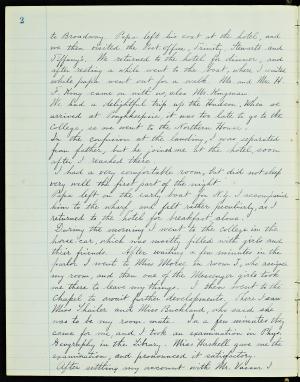 2
to Broadway. Papa left his coat at the hotel, and
we then visited the Post office, Trinity, Stewarts and
Tiffany's. We returned to the hotel for dinner, and
after resting a while went to the boat, where I waited
while papa went out for a walk. Mr. and Mrs. H.
F. King came in with us, also Mr. Kingman.
We had a delightful trip up the Hudson. When we
arrived at Poughkeepsie, it was too late to go to the
College, so we went to the Northern House.
In the confusion at the landing, I was separated
from father, but he joined me at the hotel, soon
after I reached there.
I had a very comfortable room, but did not sleep
very well the first part of the night.
Papa left on the early boat for N.Y. I accompanied
him to the wharf and felt rather peculiarly, as I
returned to the hotel for breakfast alone.
During the morning I went to the College in the
horse car, which was mostly filled with girls and
their friends. After waiting a few minutes in the
parlor I went to Miss Morse in room J, who assigned
my room, and then one of the Messenger girls took
me there to leave my things. I then went to the
Chapel to await further developments. There I saw
Miss and Miss Buckland, who said she
was to be my room-mate. In a few minutes they
came for me, and I took an examination in Phys.
Geography in the Library. Miss Haskell gave me the
examination, and pronounced it satisfactory.
After settling my account with Mr. Vassar I